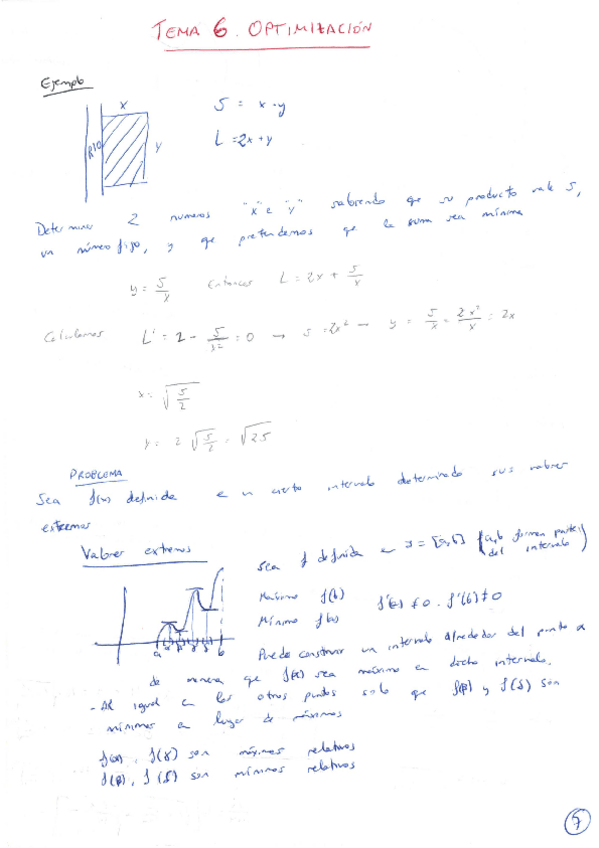 TEMA 6. OPTIMIZACIÓN
Ejemplo
x
RIO
y
S = x · y
L = 2x + y
Determinar 2 numeros "x" e "y" sabiendo que su producto vale S,
un número fijo, y que pretendemos que la suma sea mínima
y = S/x Entonces L = 2x + S/x
Calculamos L' = 2 - S/x² = 0 → S = 2x² → y = S/x = 2x²/x = 2x
x = √(S/2)
y = 2 √(S/2) = √2S
PROBLEMA
Sea f(x) definida en un cierto intervalo determinado sus valores
extremos
Valores extremos
Sea f definida en I = [a,b] (a,b forman parte del intervalo)
Máximo f(b) f'(a) ≠ 0 · f'(b) ≠ 0
Mínimo f(a)
a α β γ δ b
Puedo construir un intervalo alrededor del punto α
de manera que f(α) sea máximo en dicho intervalo.
- Al igual en los otros puntos solo que f(β) y f(δ) son
mínimos en lugar de máximos
f(α), f(γ) son máximos relativos
f(β), f(δ) son mínimos relativos